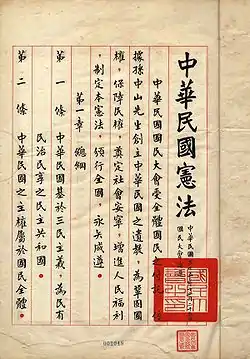 中華民國憲法
中華民國三
國民大會通
中華民國國民大會受全體國民之付託，依
據孫中山先生創立中華民國之遺教，為鞏固國
權，保障民權，奠定社會安寧，增進人民福利
，制定本憲法，頒行全國，永矢咸遵。
第一章 總綱
第一條 中華民國基於三民主義，為民有
民治民享之民主共和國。
第二條 中華民國之主權屬於國民全體。
001048